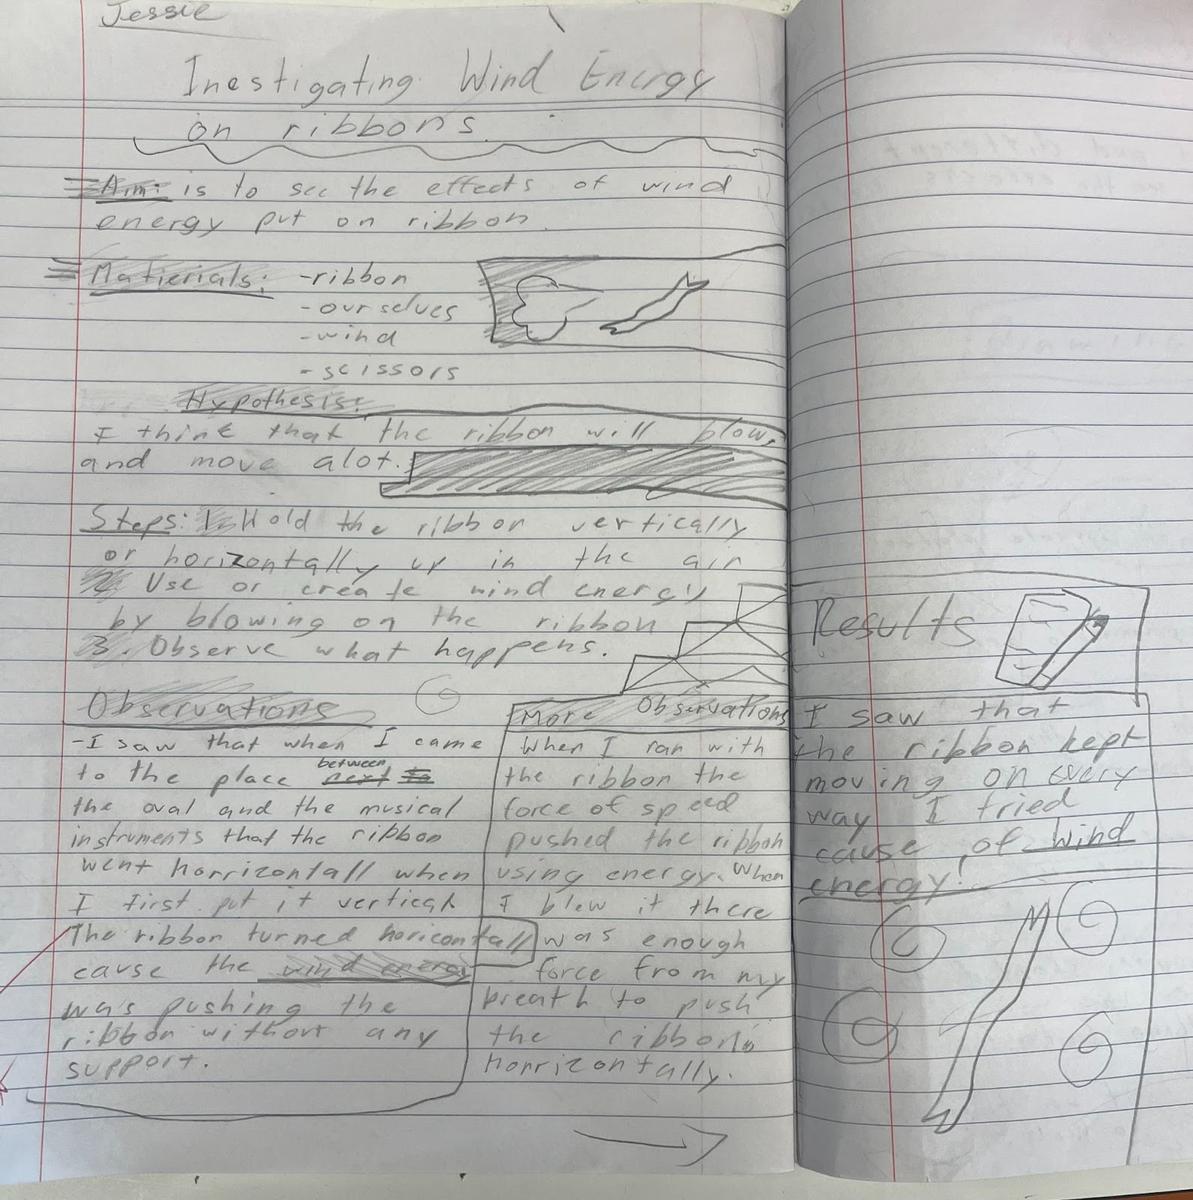 Jessie
Inestigating Wind Energy
on ribbons
Aim: is to see the effects of wind
energy put on ribbon.
Matierials: -ribbon
-ourselves
-wind
-scissors
Hypothesis:
I think that the ribbon will blow,
and move alot.
Steps: 1. Hold the ribbon vertically
or horizontally up in the air
2. Use or create wind energy
by blowing on the ribbon
3. Observe what happens.
Observations
-I saw that when I came
to the place between
the oval and the musical
instruments that the ribbon
went horrizontall when
I first put it vertical
The ribbon turned horicontall
cause the wind energy
was pushing the
ribbon without any
support.
More Observations
When I ran with
the ribbon the
force of speed
pushed the ribbon
using energy. When
I blew it there
was enough
force from my
breath to push
the ribbons
horrizontally.
Results
I saw that
the ribbon kept
moving on every
way I tried
cause of wind
energy!